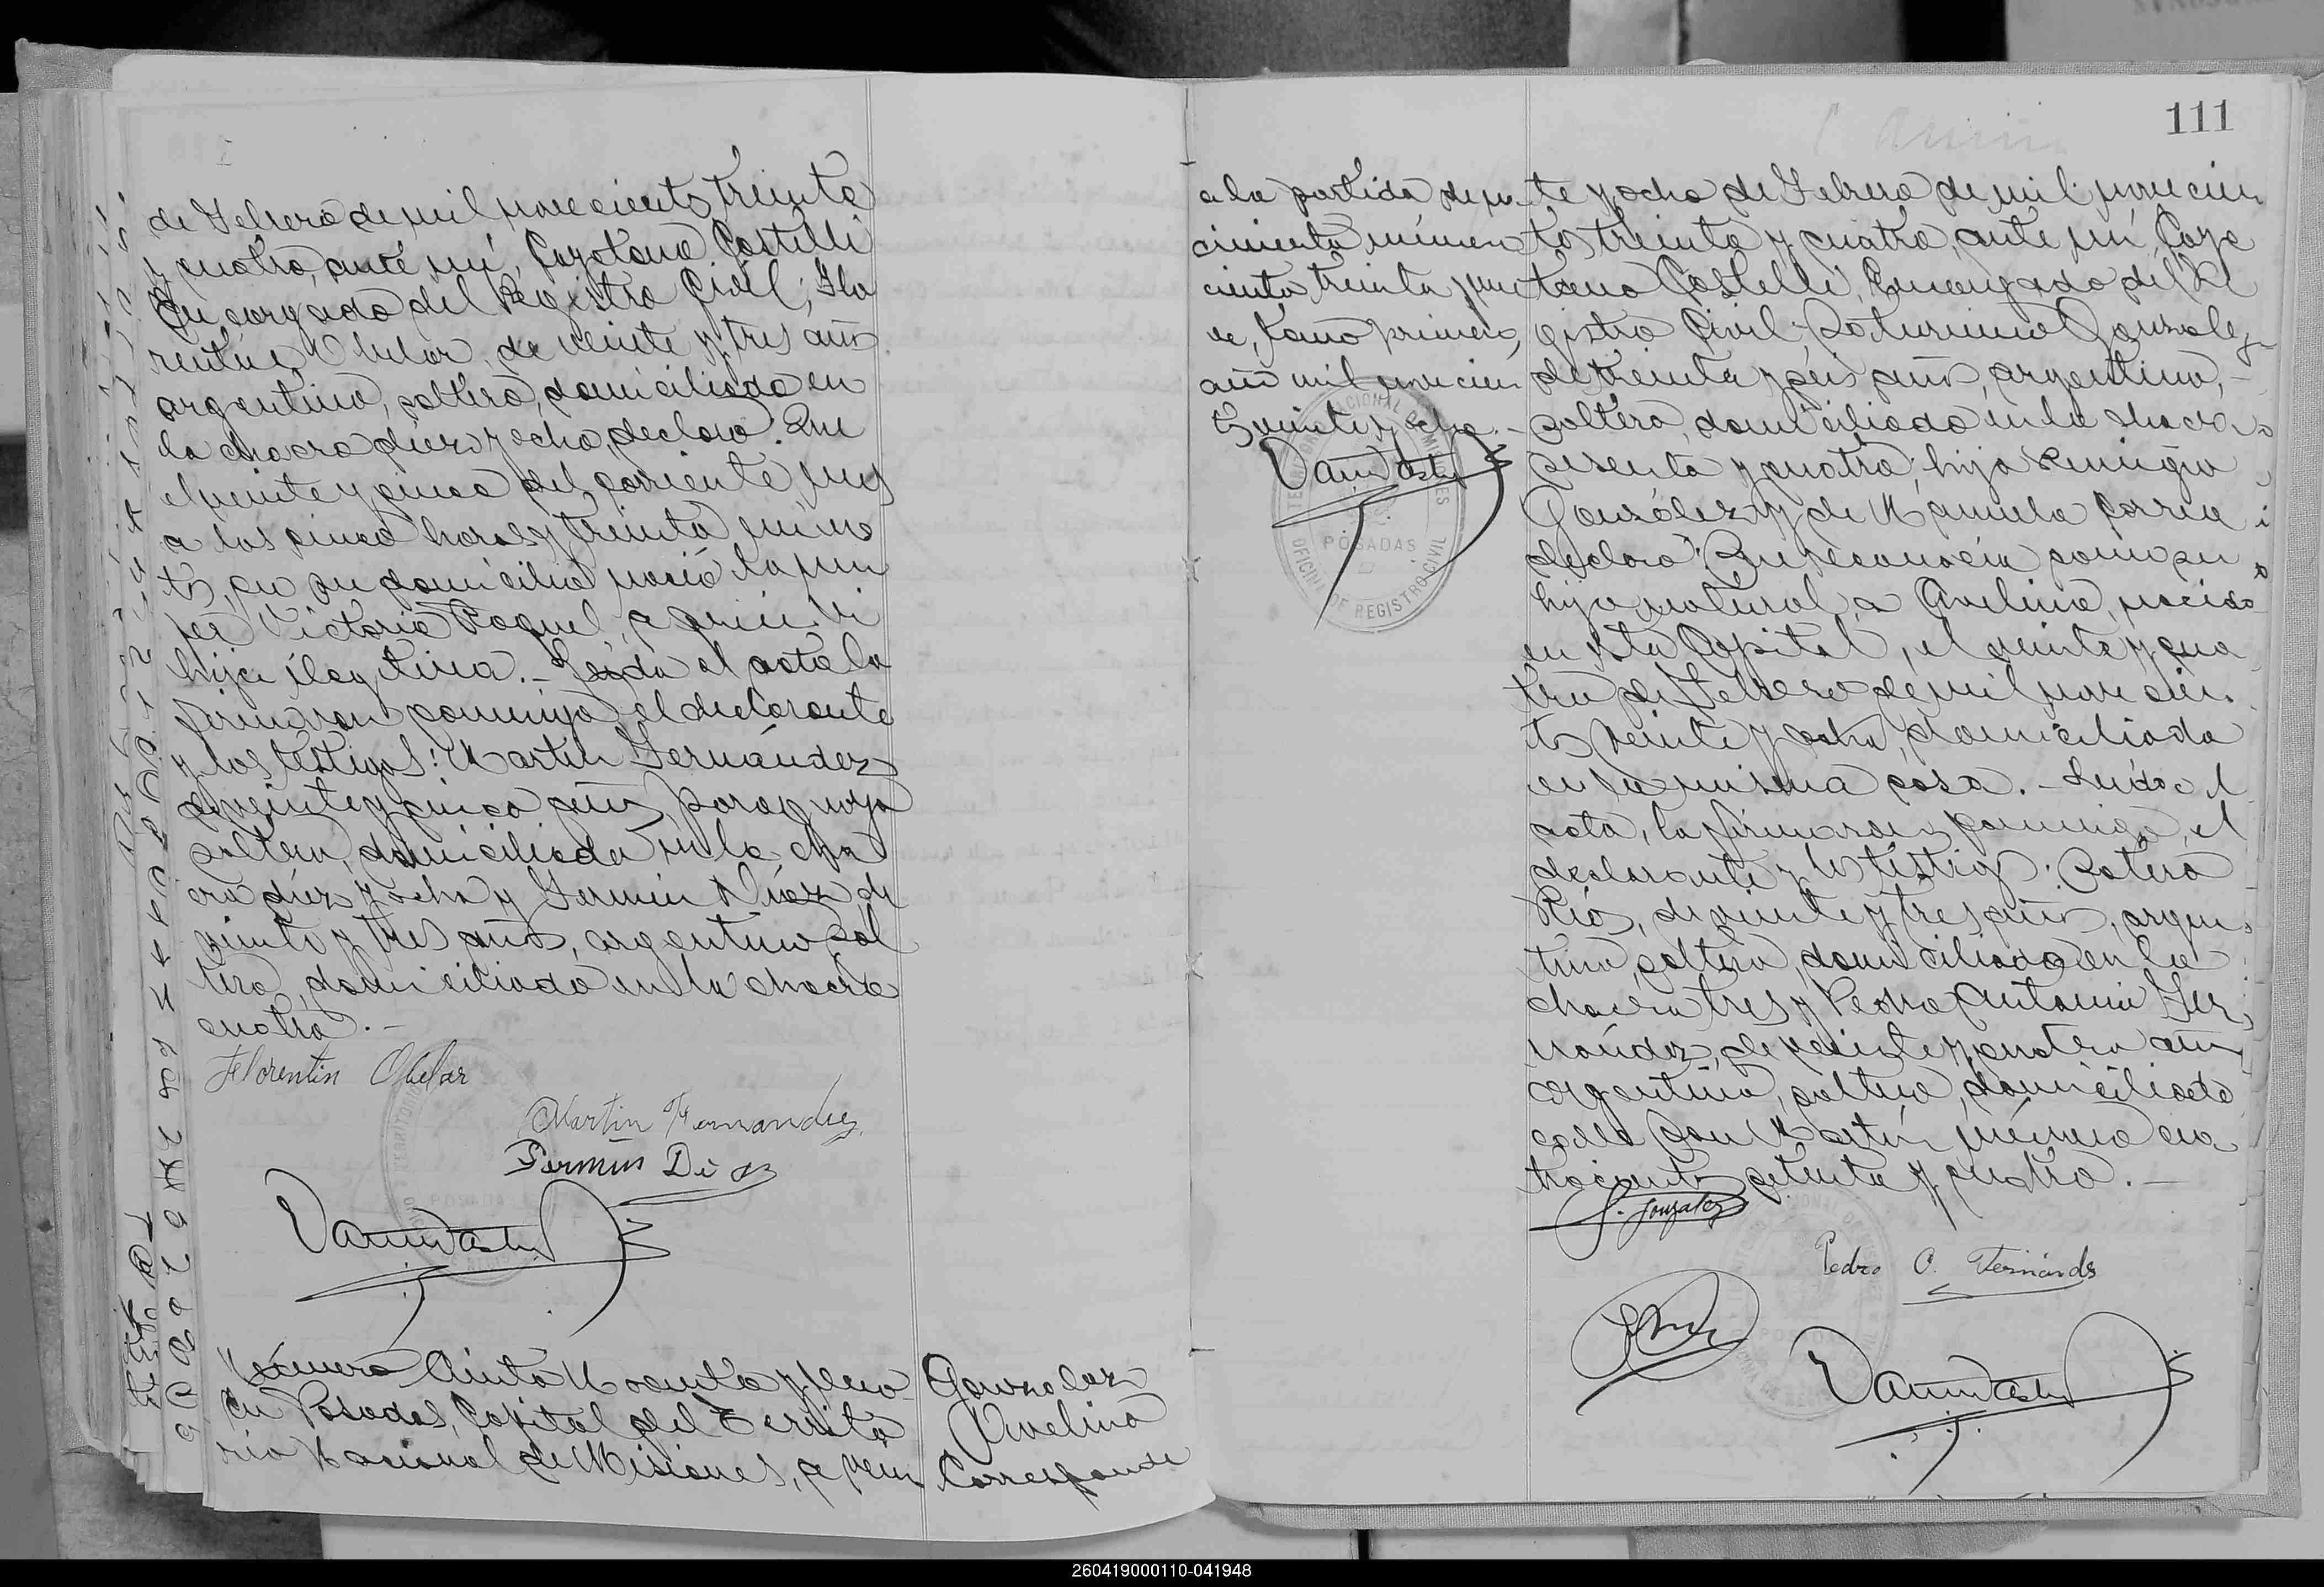 de Febrero de mil novecientos treinta
y cuatro, ante mí, Cayetano Castelli
Encargado del Registro Civil; Flo
rentin Obelar, de veinte y tres años
argentino, soltero, domiciliado en
la chacra diez y ocho, declaro: Que
el veinte y cinco del corriente mes
a las cinco horas y treinta minu
tos, en su domicilio nació la mu
jer Victoria Raquel, a quien
hija ilegitima.- Leida el acta la
firmaron conmigo el declarante
y los testigos: Martín Fernández
de veinte y cinco años, paraguayo
soltero, domiciliado en la cha
cra diez y ocho y Fermin Díaz, de
veinte y tres años, argentino sol
tero, domiciliado en la chacra
cuatro.-
Florentin Obelar
Martin Fernandez
Fermin Diaz
Número Ciento Noventa y
En Posadas, Capital del Territo
rio Nacional de Misiones, a vein
Gonzalez
Avelino
Corresponde
111
a la partida de na
cimiento número
ciento treinta y nue
ve, tomo primero,
año mil novecien
tos veinte y ocho.-
TERRITORIO NACIONAL DE MISIONES
POSADAS
OFICINA DE REGISTRO CIVIL
te y ocho de Febrero de mil novecien
tos treinta y cuatro, ante mí, Caye
tano Castelli, Encargado del Re
gistro Civil: Saturnino Gonzalez
de treinta y seis años, argentino,-
soltero, domiciliado en la chacra
sesenta y cuatro; hijo Remigio
González y de Manuela Correa
declaro: Que reconocía como su
hijo natural a Avelino, nacido
en esta Capital, el veinte y cua
tro de Febrero de mil novecien
tos veinte y ocho, domiciliado
en la misma casa.- Leida el
acta, la firmaron conmigo, el
declarante y los testigos: Sotero
Ríos, de veinte y tres años, argen
tino, soltero, domiciliado en la
chacra tres y Pedro Antonio Fer
nández, de veinte y cuatro años
argentino, soltero, domiciliado
calle San Martín número cua
trocientos setenta y cuatro.-
S. Gonzalez
Pedro A. Fernández
260419000110-041948